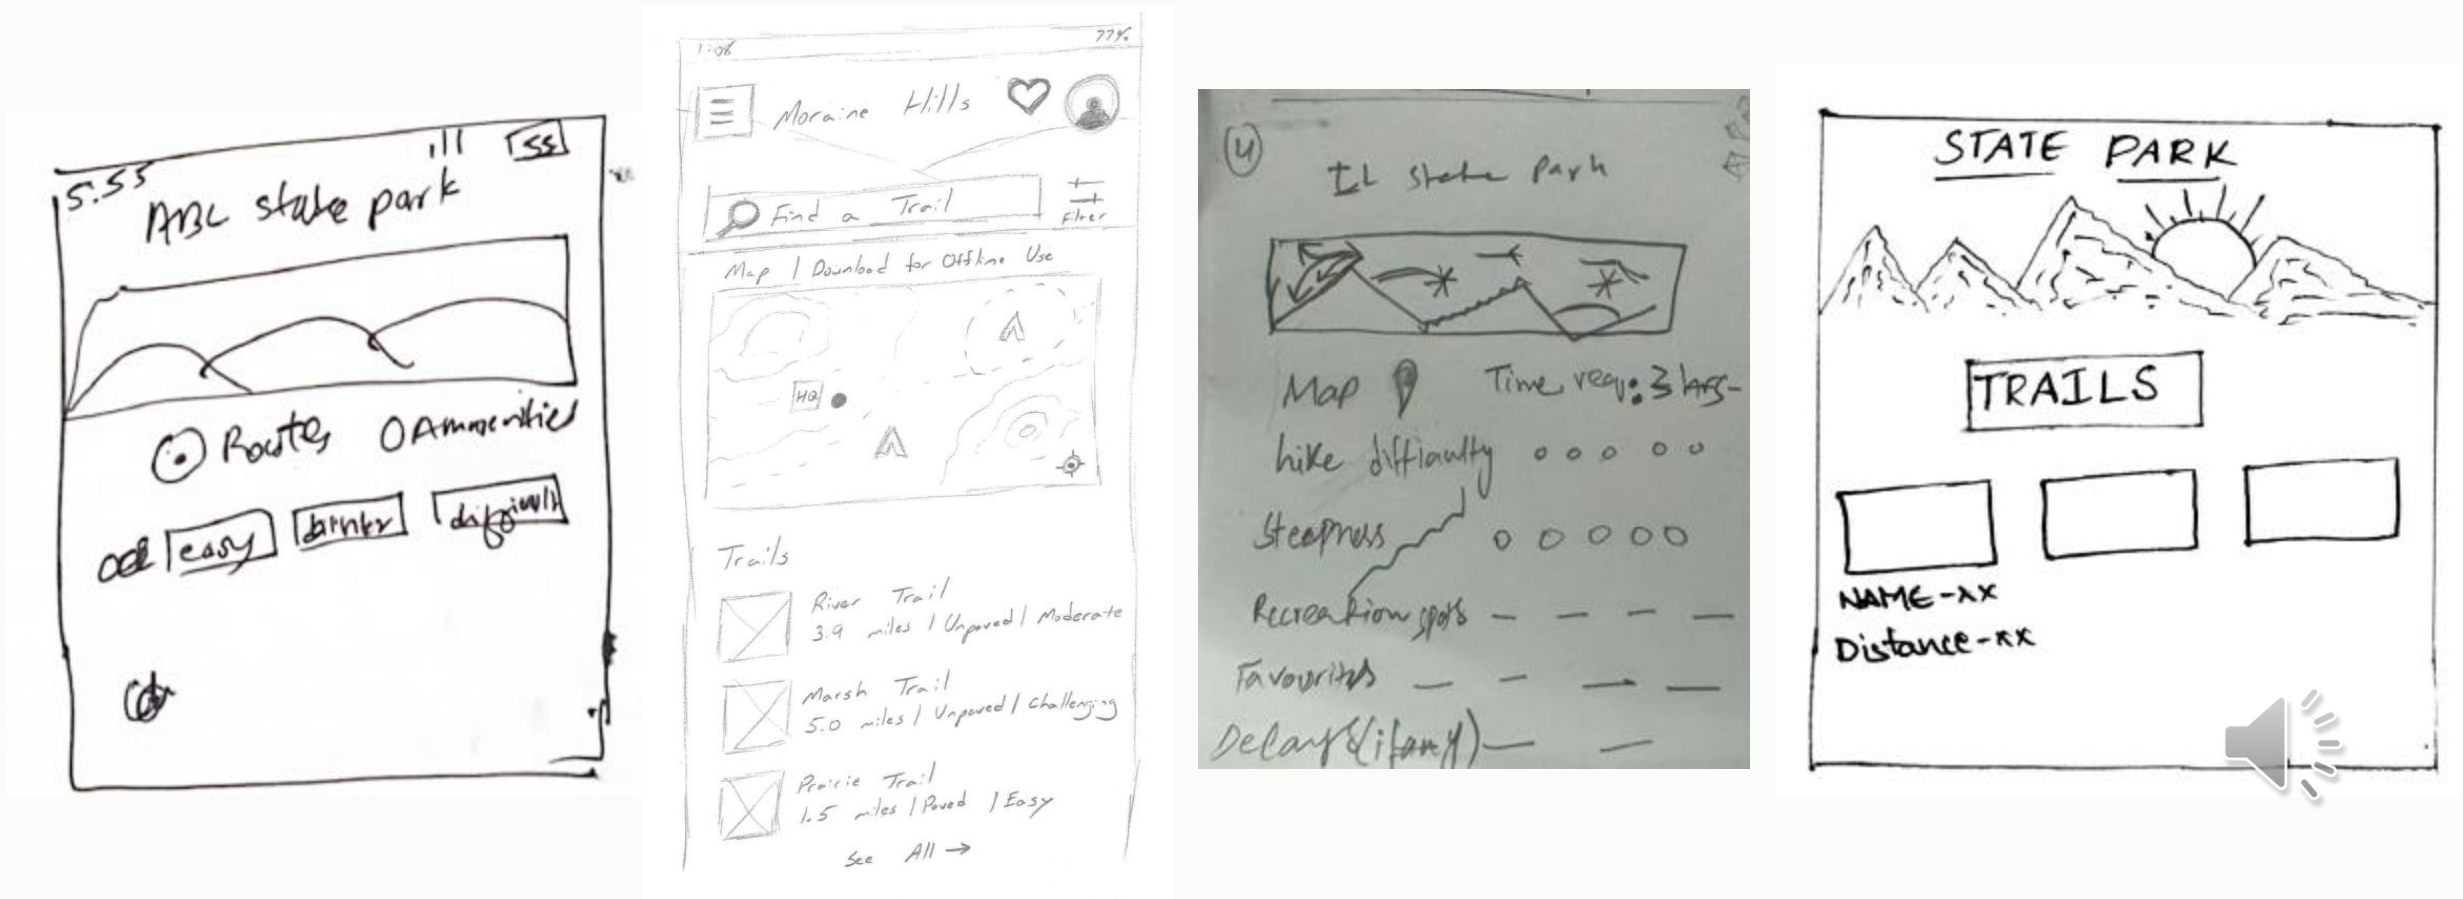 5.55
55
ABC state park
Routes O Ammenities
easy
difficult
1:08 77%
Moraine Hills
Find a Trail
Filter
Map | Download for Offline Use
HQ
Trails
River Trail
3.9 miles | Unpaved | Moderate
Marsh Trail
5.0 miles | Unpaved | Challenging
Prairie Trail
1.5 miles | Paved | Easy
See All →
4
IL state park
Map Time req: 3 hrs-
hike difficulty
Steepness
Recreation spots
Favourites
Delays (if any)
STATE PARK
TRAILS
NAME-xx
Distance-xx